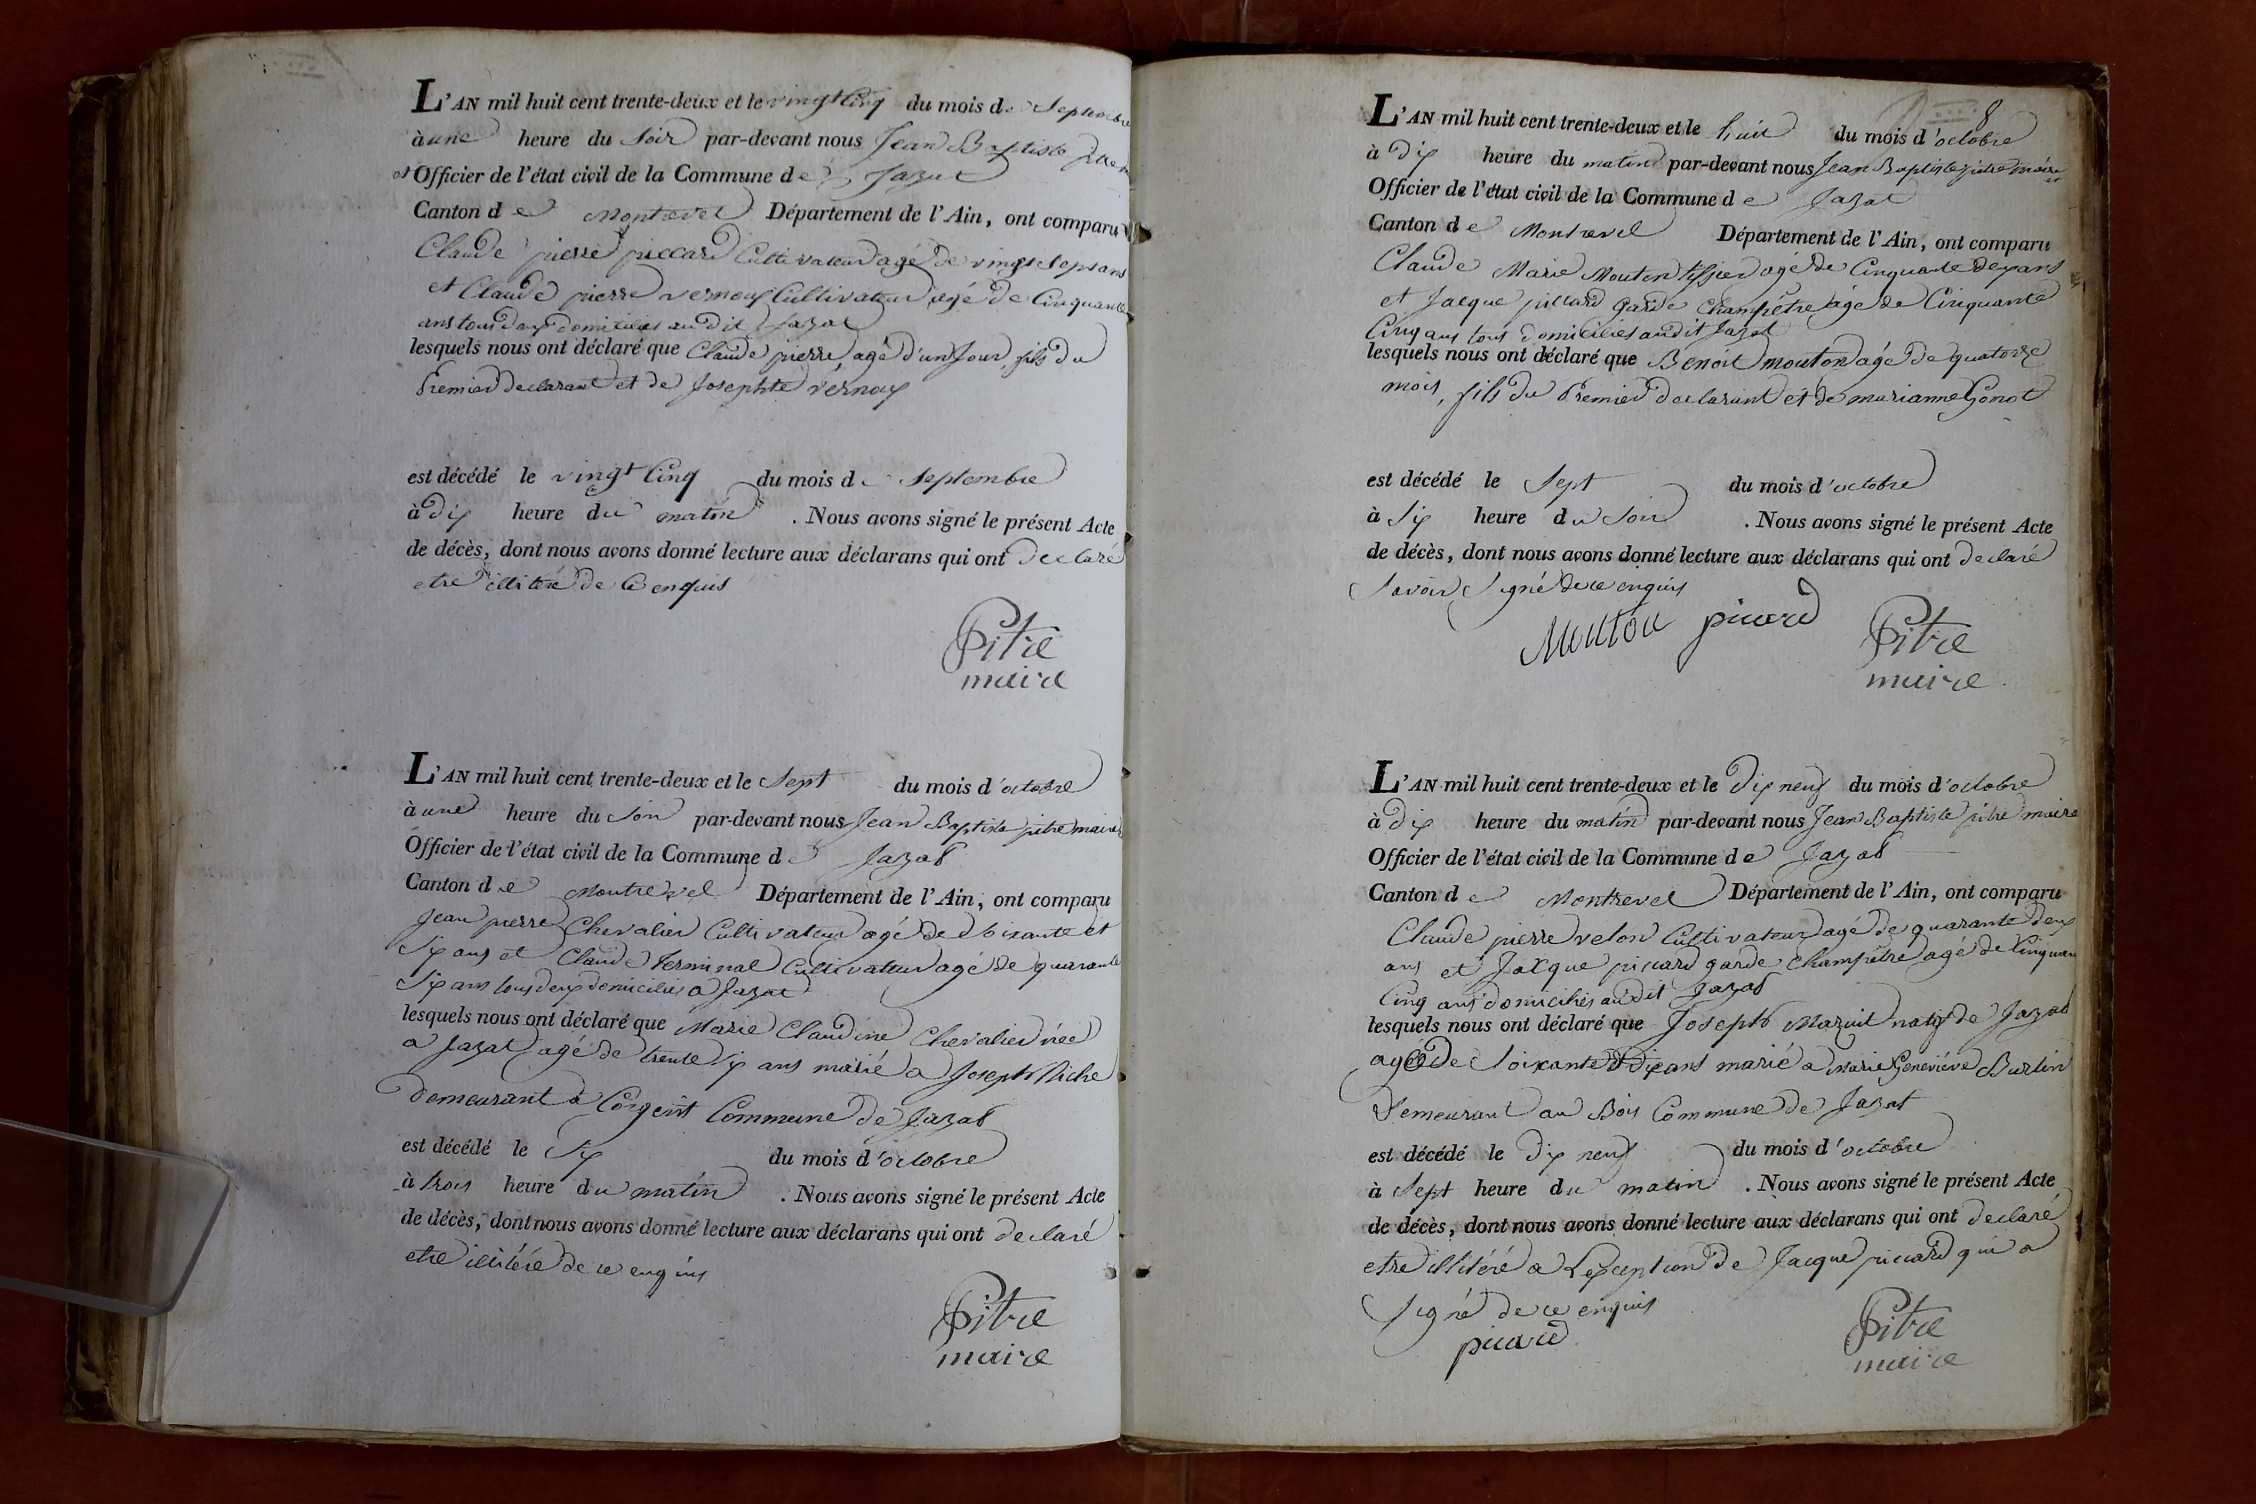 L'AN mil huit cent trente-deux et le vingt Cinq du mois de Septembre
à une heure du Soir par-devant nous Jean Baptiste
Officier de l'état civil de la Commune de Jazat
Canton de Montrevel Département de l'Ain, ont comparu
Claude pierre piccard Cultivateur agé de vingt Sept ans
et Claude pierre vernoux Cultivateur agé de Cinquante
ans tous deux domiciliés au dit Jazat
lesquels nous ont déclaré que Claude pierre agé d'un Jour, fils du
Premier declarant et de Josephte vérnoux
est décédé le vingt Cinq du mois de Septembre
à dix heure du matin . Nous avons signé le présent Acte
de décès, dont nous avons donné lecture aux déclarans qui ont declaré
etre illitéré de Ce enquis
Pitre
maire
L'AN mil huit cent trente-deux et le Sept du mois d'octobre
à une heure du Soir par-devant nous Jean Baptiste pitre maire
Officier de l'état civil de la Commune de Jazat
Canton de Montrevel Département de l'Ain, ont comparu
Jean pierre Chevalier Cultivateur agé de Soixante et
Six ans et Claude Terminal Cultivateur agé de quarante
Six ans tous deux domiciliés a Jazat
lesquels nous ont déclaré que Marie Claudine Chevalier née
a Jazat agé de trente Six ans marié a Joseph Niche
demeurant a Corgent Commune de Jazat
est décédé le Six du mois d'octobre
à trois heure du matin . Nous avons signé le présent Acte
de décès, dont nous avons donné lecture aux déclarans qui ont declaré
etre illitéré de ce enquis
Pitre
maire
8
L'AN mil huit cent trente-deux et le huit du mois d'octobre
à dix heure du matin par-devant nous Jean Baptiste pitre maire
Officier de l'état civil de la Commune de Jazat
Canton de Montrevel Département de l'Ain, ont comparu
Claude Marie Mouton tissier agé de Cinquante deux ans
et Jacque piccard garde Champêtre agé de Cinquante
Cinq ans tous domiciliés au dit Jazat
lesquels nous ont déclaré que Benoit mouton agé de quatorze
mois, fils du Premier declarant et de marianne Gonot
est décédé le Sept du mois d'octobre
à Six heure du Soir . Nous avons signé le présent Acte
de décès, dont nous avons donné lecture aux déclarans qui ont declaré
Savoir Signé de ce enquis
Mouton picard Pitre
maire
L'AN mil huit cent trente-deux et le dix neuf du mois d'octobre
à dix heure du matin par-devant nous Jean Baptiste pitre maire
Officier de l'état civil de la Commune de Jazat
Canton de Montrevel Département de l'Ain, ont comparu
Claude pierre velon Cultivateur agé de quarante deux
ans et Jacque piccard garde Champêtre agé de Cinquan
Cinq ans domiciliés au dit Jazat
lesquels nous ont déclaré que Joseph Mazuit natif de Jazat
agé de Soixante et dix ans marié a Marie Geneviéve Burlin
Demeurant au Bois Commune de Jazat
est décédé le dix neuf du mois d'octobre
à Sept heure du matin . Nous avons signé le présent Acte
de décès, dont nous avons donné lecture aux déclarans qui ont declaré
etre illitéré a L'exception de Jacque piccard qui a
Signé de ce enquis
picard Pitre
maire